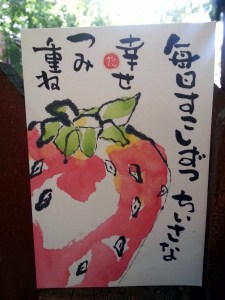 毎日すこしずつ ちいさな
幸せ
つみ
重ね